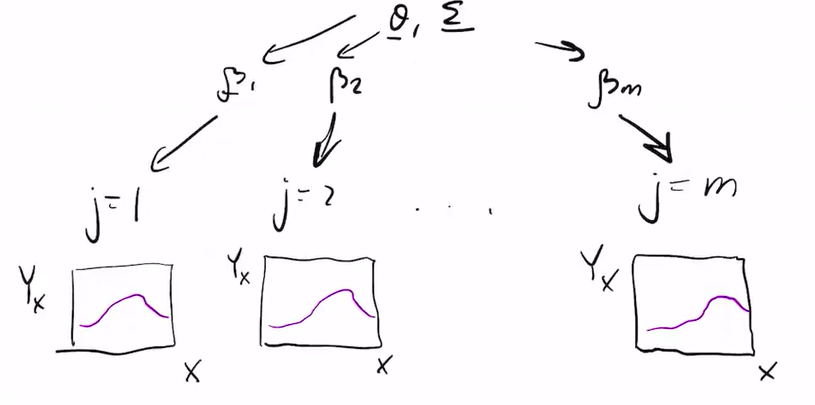 θ, Σ
β₁ β₂ βₘ
j=1 j=2 . . . j=m
Yₓ Yₓ Yₓ
x x x